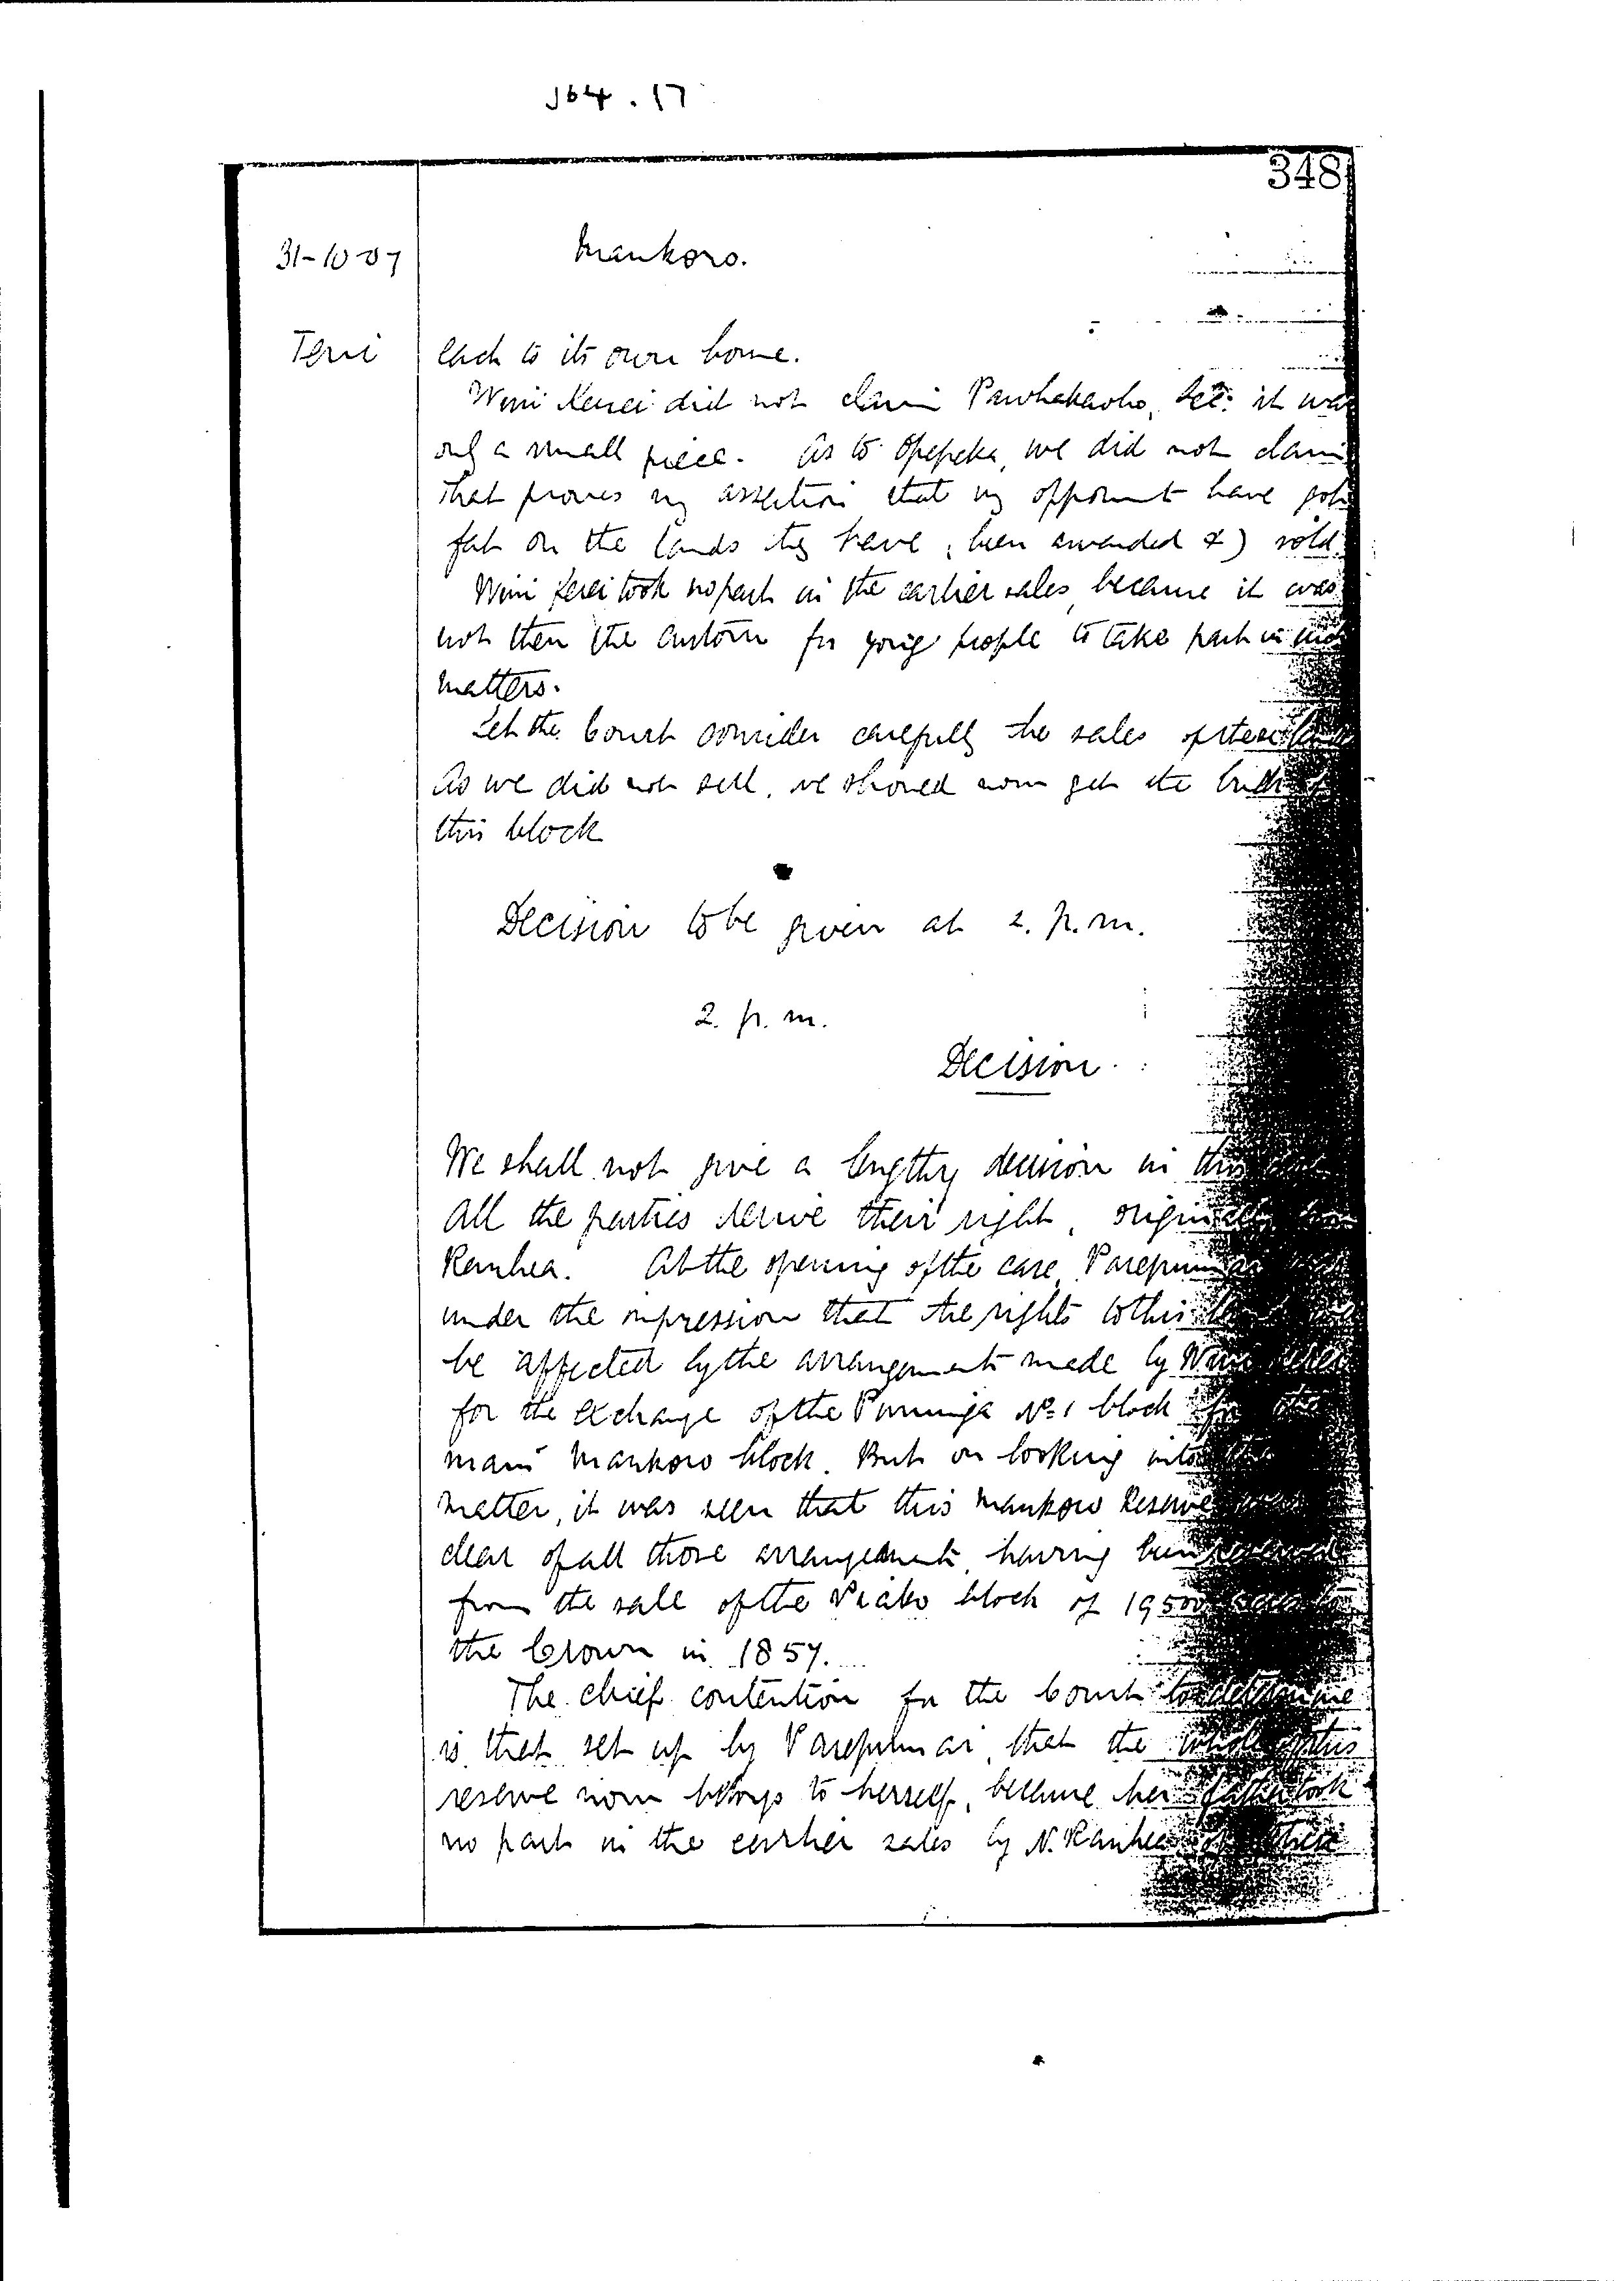 J64.17
348
31-10-07
Maukoro.
Teni each to its own home.
Wini Kerei did not claim Pawhakaoho, &c: it was
only a small piece. As to Opepeka, we did not claim
That proves my assertion that my opponent have got
fat on the lands they have (been awarded &) sold.
Wini Kerei took no part in the earlier sales, because it was
not then the custom for young people to take part in such
matters.
Let the Court consider carefully the sales of these
As we did not sell, we should now get the
this block
Decision to be given at 2. p.m.
2. p.m.
Decision.
We shall not give a lengthy decision in this
All the parties derive their right, originally from
Rauhea. At the opening of the case, Parepumai
under the impression that the rights to this
be affected by the arrangements made by Wini Kerei
for the exchange of the Puninga No 1 block for the
main Maukoro block. But on looking into the
matter, it was seen that this Maukoro Reserve was
clear of all those arrangements, having been reserved
from the sale of the Piako block of 19500 acres to
the Crown in 1857.
The chief contention for the Court to determine
is that set up by Parepumai, that the whole of this
reserve now belongs to herself, because her father took
no part in the earlier sales by N. Rauhea of these